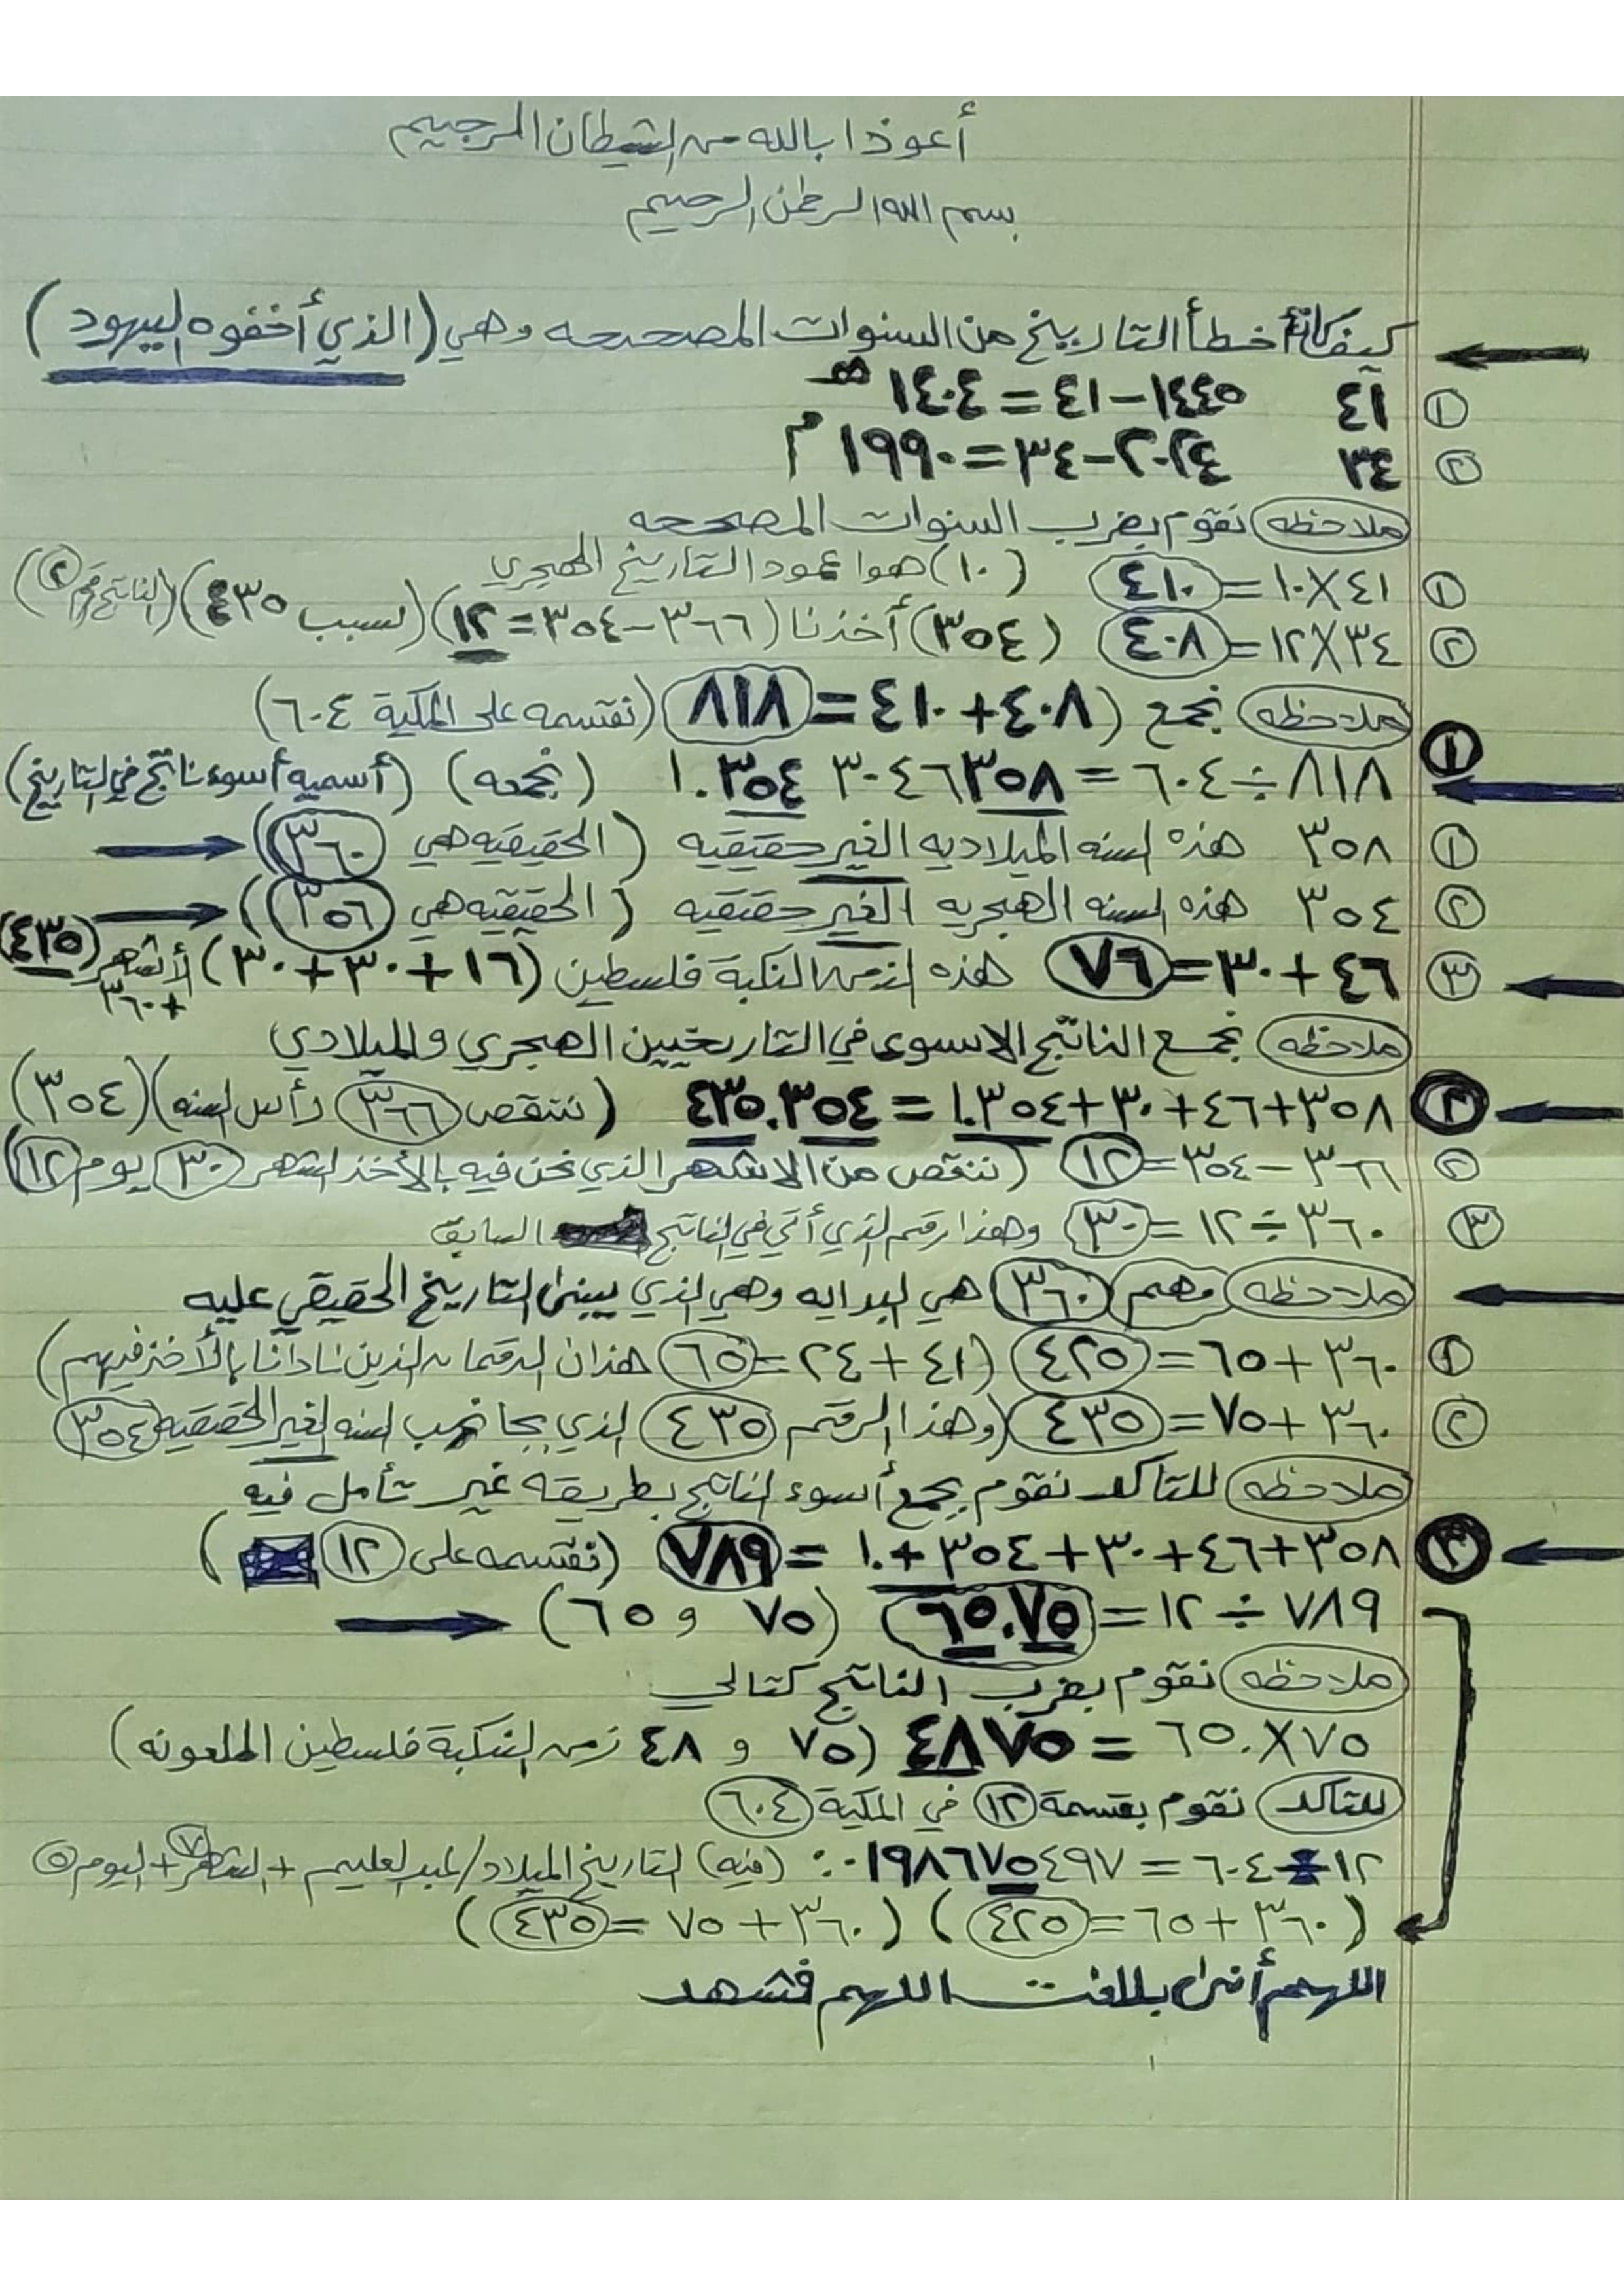 أعوذا بالله من الشيطان الرجيم
بسم الله الرحمن الرحيم
كيف كانة أخطأ التاريخ من السنوات المصححه وهي (الذي أخفوه اليهود)
① ٤١ ١٤٤٥-٤١=١٤٠٤ هـ
② ٣٤ ٢٠٢٤-٣٤=١٩٩٠ م
ملاحظه نقوم بضرب السنوات المصححه
① ٤١×١٠=٤١٠ (١٠) هوا عمود التاريخ الهجري
② ٣٤×١٢=٤٠٨ (٣٥٤) أخذنا (٣٦٦-٣٥٤=١٢) (لسبب ٤٣٥) (الناتج رقم ②)
ملاحظه نجمع (٤٠٨+٤١٠=٨١٨ (نقتسمه على المكية ٦٠٤)
① ٨١٨÷٦٠٤=١.٣٥٤٣٠٤٦٣٥٨ (نجمعه) (أسميه أسوء ناتج في التاريخ)
① ٣٥٨ هذه السنه الميلاديه الغير حقيقيه (الحقيقيه هي ٣٦٠)
② ٣٥٤ هذه السنه الهجريه الغير حقيقيه (الحقيقيه هي ٣٥٦)
③ ٤٦+٣٠=٧٦ هذه الزمن النكبة فلسطين (١٦+٣٠+٣٠) الأشهر (٤٣٥)
+٣٦٠
ملاحظه نجمع الناتج الاسوء في التاريخيين الهجري والميلادي
② ٣٥٨+٤٦+٣٠+١.٣٥٤=٤٣٥.٣٥٤ (ننقص ٣٦٦ رأس السنه) (٣٥٤)
② ٣٦٦-٣٥٤=١٢ (ننقص من الاشهر الذي نحن فيه بالأخذ الشهر ٣٠ يوم ١٢)
③ ٣٦٠÷١٢=٣٠ وهذا رقم الذي أتى في الناتج السابق
ملاحظه مهم ٣٦٠ هي البدايه وهي الذي يبنى التاريخ الحقيقي عليه
① ٣٦٠+٦٥=٤٢٥ (٤١+٢٤=٦٥ هذان الرقمان الذين نادانا بالأخذ فيهم)
② ٣٦٠+٧٥=٤٣٥ (وهذا الرقم ٤٣٥ الذي بجانب السنه الغير الحقيقيه ٣٥٤
ملاحظه للتاكد نقوم بجمع أسوء الناتج بطريقه غير تأمل فيه
③ ٣٥٨+٤٦+٣٠+٣٥٤+١.=٧٨٩ (نقتسمه على ١٢)
٧٨٩÷١٢=٦٥.٧٥ (٧٥ و ٦٥)
ملاحظه نقوم بضرب الناتج كتالي
٧٥×٦٥.=٤٨٧٥ (٧٥ و ٤٨ زمن النكبة فلسطين الملعونه)
للتاكد نقوم بقسمة ١٢ في المكية ٦٠٤
١٢÷٦٠٤=٠.٠١٩٨٦٧٥٤٩٧ (فيه) التاريخ الميلاد/لعبد العليم + الشهر ٧ + اليوم ٥
(٣٦٠+٦٥=٤٢٥) (٣٦٠+٧٥=٤٣٥)
اللهم أني بلاغت اللهم فشهد